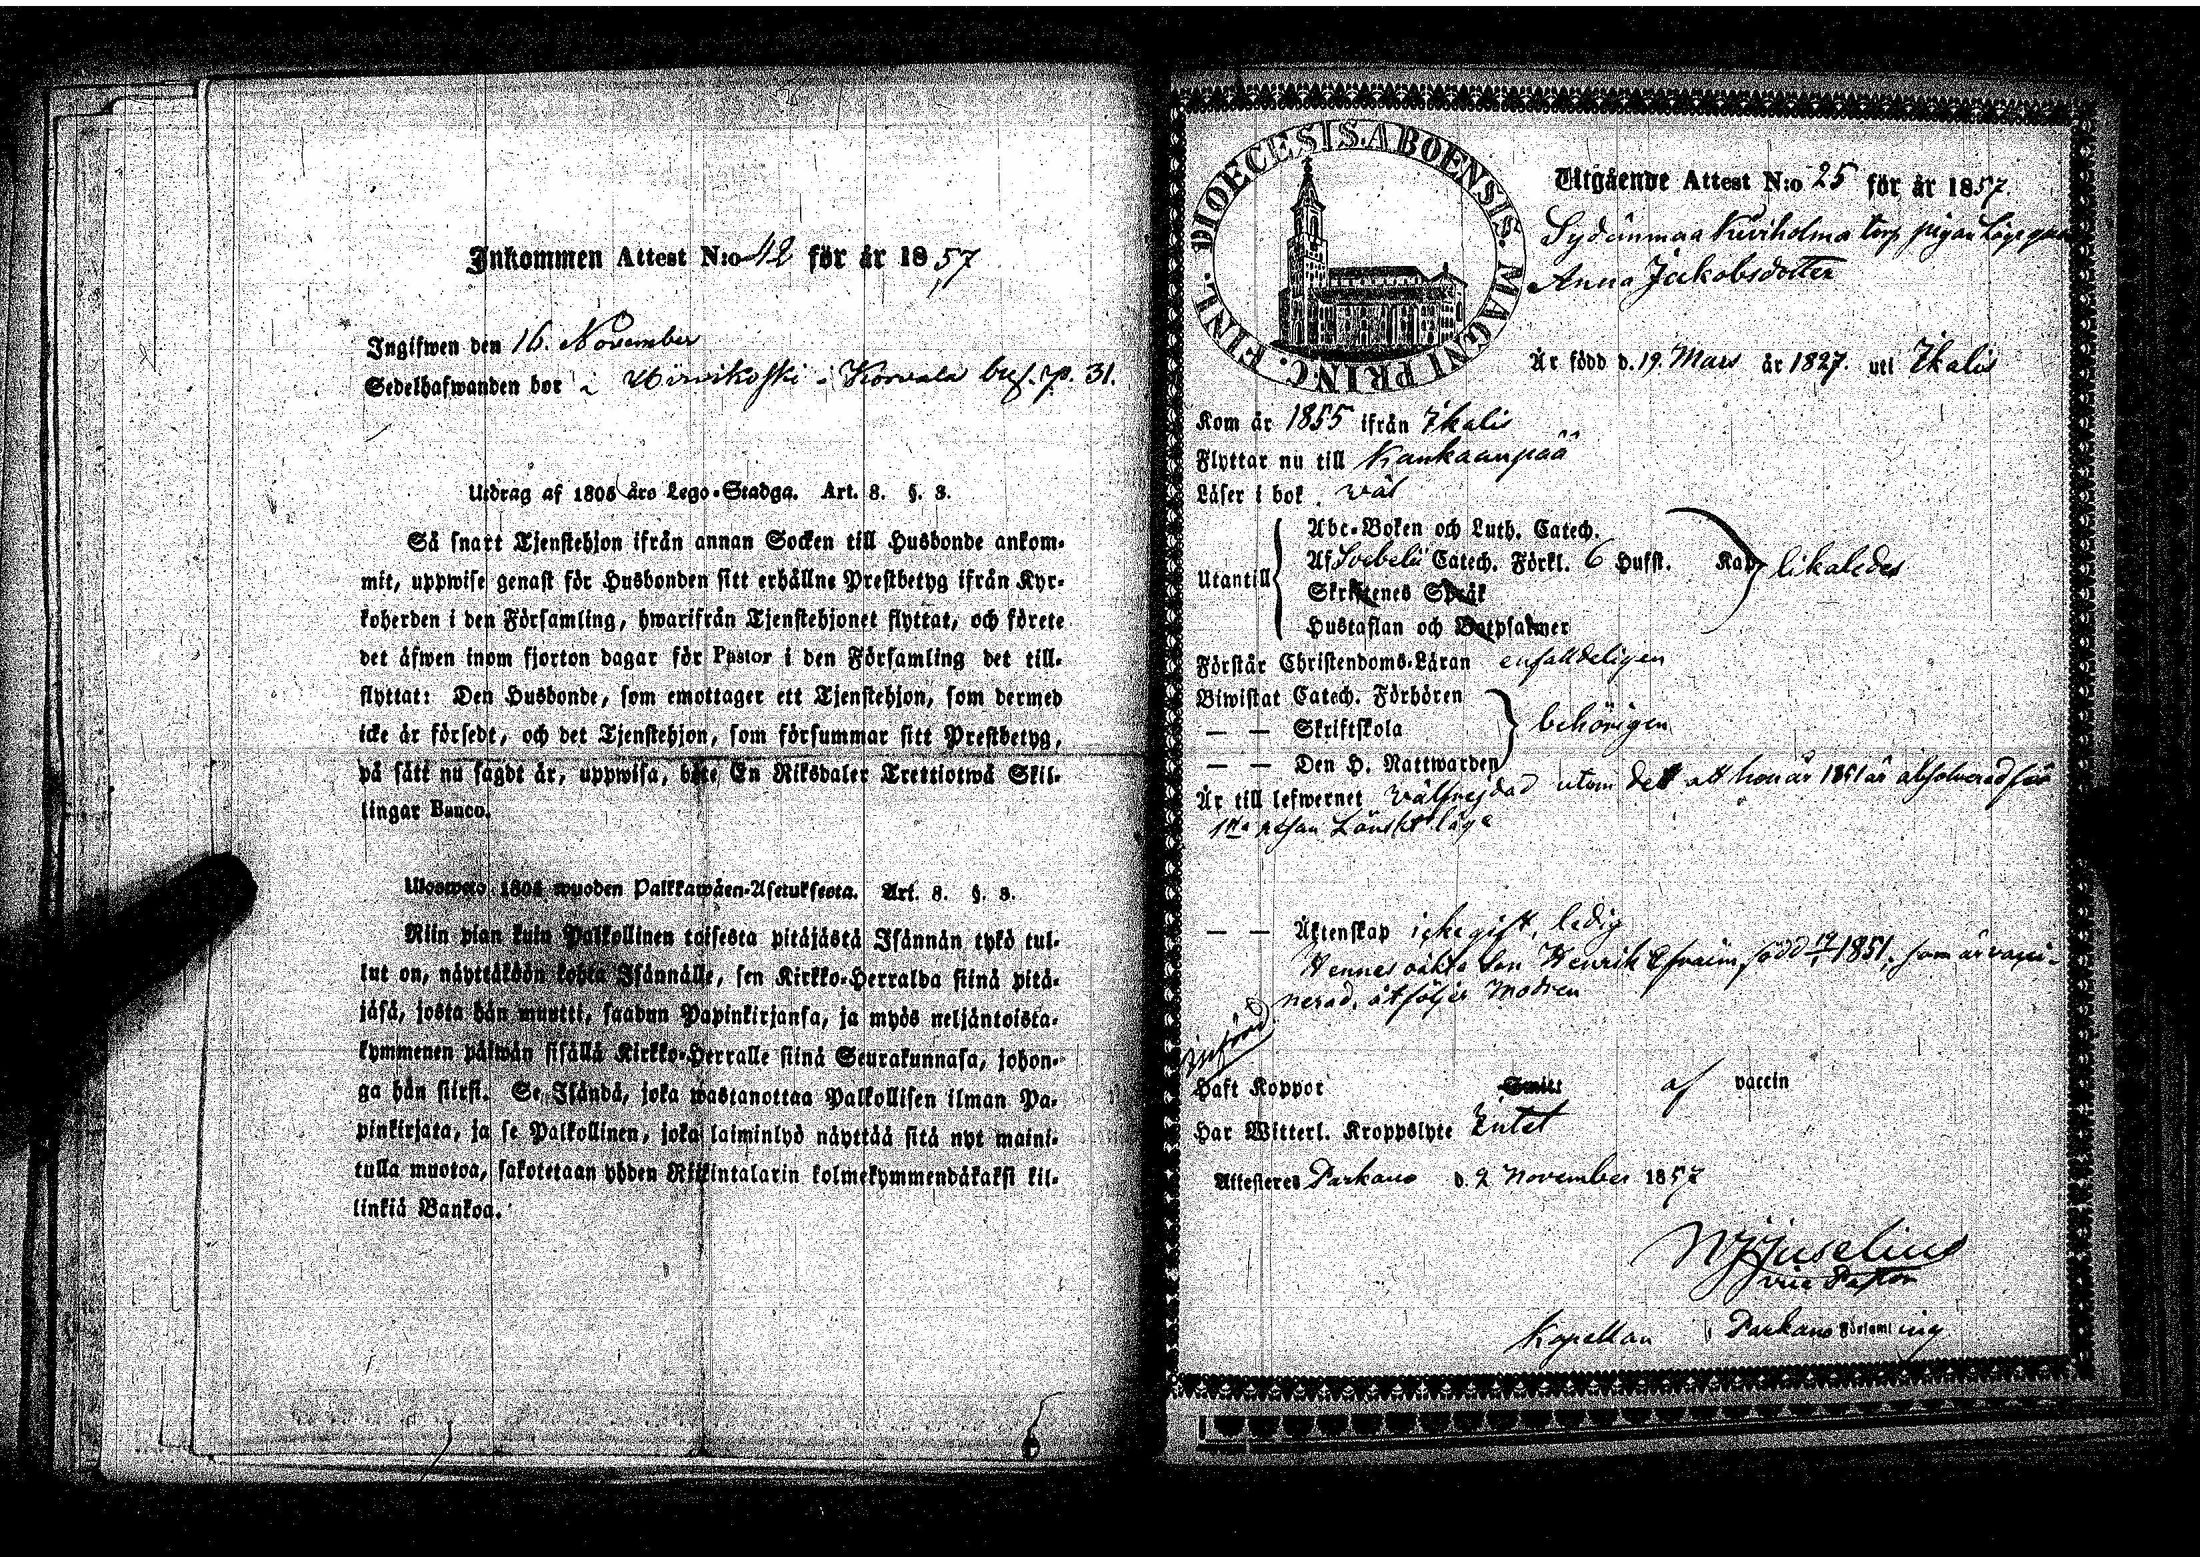 Inkommen Attest N:o 42 för år 1857
Ingifwen den 16. November
Sedelhafwanden bor i Korvala p. 31.
Utdrag af 1805 års Lego-Stadga. Art. 8. §. 3.
Så snart Tjenstehjon ifrån annan Socken till Husbonde ankom-
mit, uppwise genast för Husbonden sitt erhållne Prestbetyg ifrån Kyr-
koherden i den Församling, hwarifrån Tjenstehjonet flyttat, och förete
det äfwen inom fjorton dagar för Pastor i den Församling det till-
flyttat: Den Husbonde, som emottager ett Tjenstehjon, som dermed
icke är försedt, och det Tjenstehjon, som försummar sitt Prestbetyg,
på sätt nu sagdt är, uppwisa, böte En Riksdaler Trettiotwå Skil-
lingar Banco.
Ulosweto 1805 wuoden Palkkawäen-Asetuksesta. Art. 8. §. 3.
Niin pian kuin Palkollinen toisesta pitäjästä Isännän tykö tul-
lut on, näyttäkään kohta Isännälle, sen Kirkko-Herralda siinä pitä-
jäsä, josta hän muutti, saadun Papinkirjansa, ja myös neljäntoista-
kymmenen päiwän sisällä Kirkko-Herralle siinä Seurakunnasa, johon-
ga hän siirsi. Se Isändä, joka wastanottaa Palkollisen ilman Pa-
pinkirjata, ja se Palkollinen, joka laiminlyö näyttää sitä nyt maini-
tulla muotoa, sakotetaan yhden Riikintalarin kolmekymmendäkaksi kil-
linkiä Bankoa.
FINL. DIOECESIS. ABOENSIS. MAGNI PRINC.
Utgående Attest N:o 25 för år 1857
Sydänmaa Kiviholma torp pigan
Anna Jakobsdotter
Är född d. 19. Mars år 1827. uti Ikalis
Kom år 1855 ifrån Ikalis
Flyttar nu till Kankaanpää
Läser i bok väl
Abc-Boken och Luth. Catech.
Utantill Af Svebelii Catech. Förkl. 6 Hufst. Kap likaledes
Skriftenes Språk
Hustaflan och Botpsalmer
Förstår Christendoms-Läran enfaldeligen
Biwistat Catech. Förhören
— — Skriftskola behörigen
— — Den H. Nattwarden
Är till lefwernet välfrejdad utom det att hon år 1851 är absolverad för
1sta resan Lönskt läge
— — Äktenskap icke gift, ledig
Hennes oäkta Son Henrik Efraim, född 1851, som är vacci-
nerad, åtföljer Modren
införd
Haft Koppor af vaccin
Har Witterl. Kroppslyte Intet
Attesteres Parkano d. 2 November 1857
Juselius
vice Pastor
Kapellan i Parkano Församling